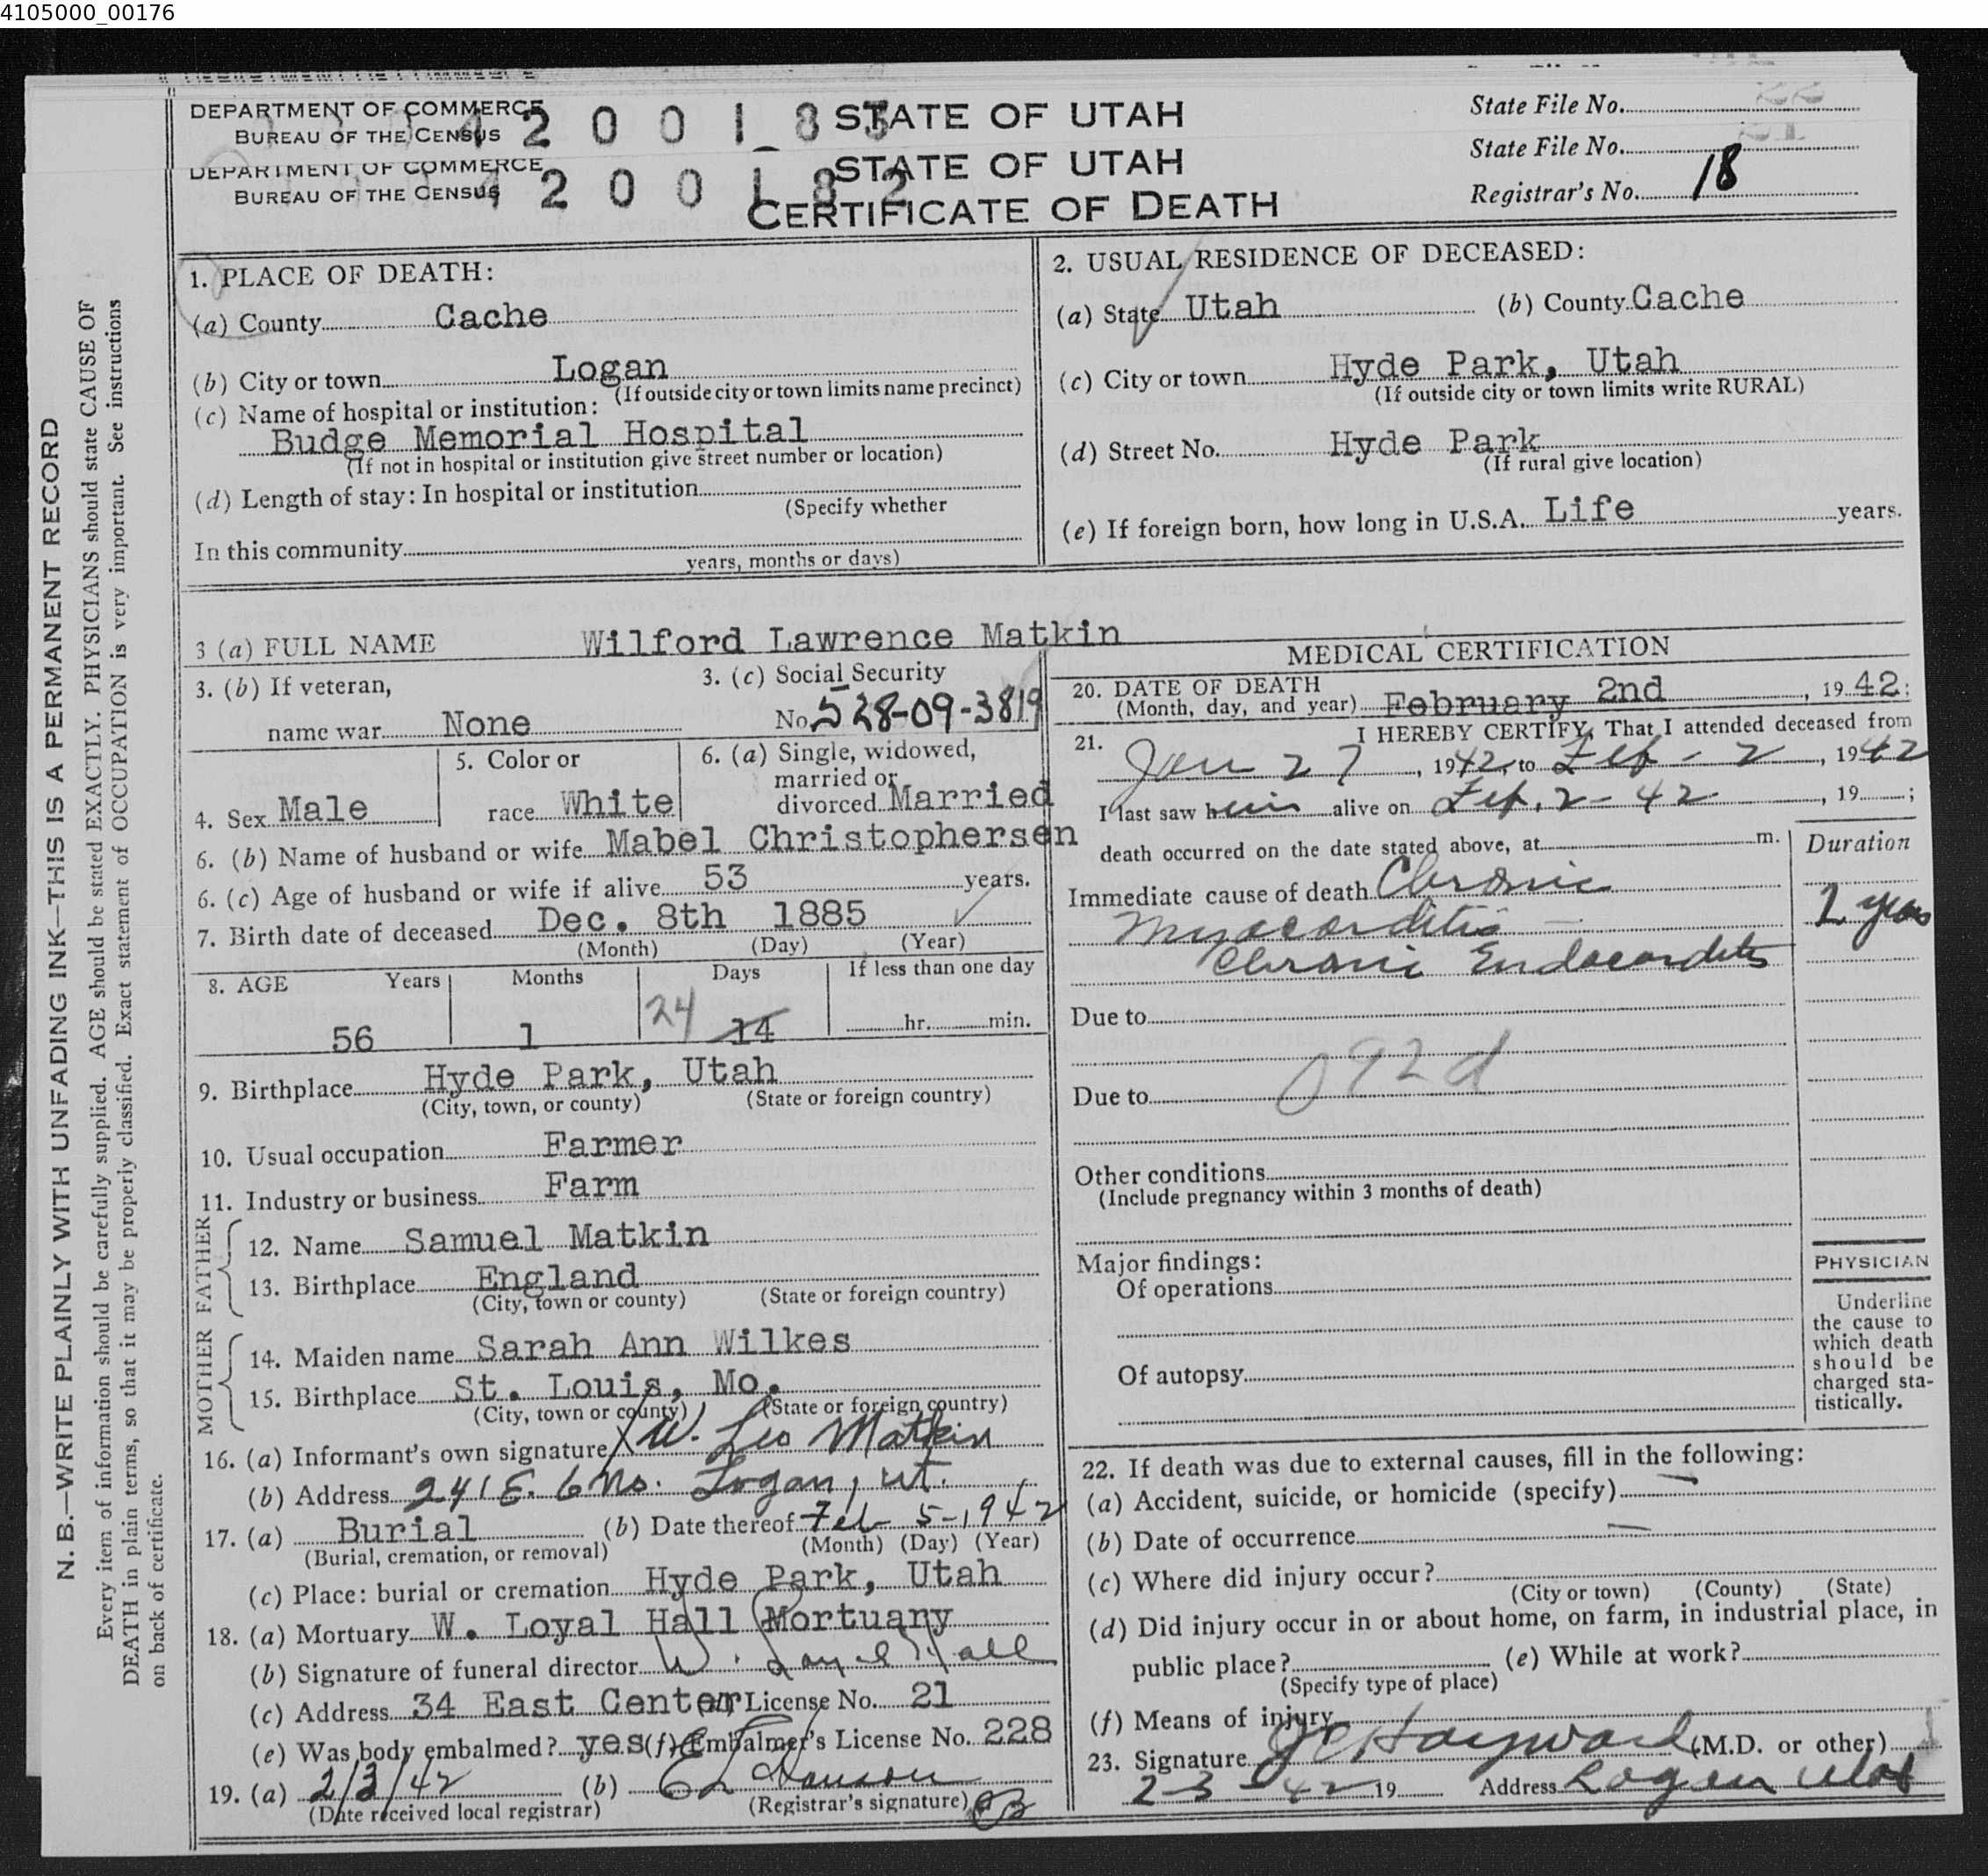 4105000_00176
DEPARTMENT OF COMMERCE
BUREAU OF THE CENSUS
4 2 0 0 1 8 3
STATE OF UTAH
State File No.
DEPARTMENT OF COMMERCE
BUREAU OF THE CENSUS
4 2 0 0 1 8 2
STATE OF UTAH
CERTIFICATE OF DEATH
State File No.
Registrar's No. 18
N. B.—WRITE PLAINLY WITH UNFADING INK—THIS IS A PERMANENT RECORD
Every item of information should be carefully supplied. AGE should be stated EXACTLY. PHYSICIANS should state CAUSE OF
DEATH in plain terms, so that it may be properly classified. Exact statement of OCCUPATION is very important. See instructions
on back of certificate.
1. PLACE OF DEATH:
(a) County Cache
(b) City or town Logan
(If outside city or town limits name precinct)
(c) Name of hospital or institution:
Budge Memorial Hospital
(If not in hospital or institution give street number or location)
(d) Length of stay: In hospital or institution
(Specify whether
In this community
years, months or days)
2. USUAL RESIDENCE OF DECEASED:
(a) State Utah (b) County Cache
(c) City or town Hyde Park, Utah
(If outside city or town limits write RURAL)
(d) Street No. Hyde Park
(If rural give location)
(e) If foreign born, how long in U.S.A. Life years.
3 (a) FULL NAME Wilford Lawrence Matkin
3. (b) If veteran,
name war None
3. (c) Social Security
No. 528-09-3819
4. Sex Male
5. Color or
race White
6. (a) Single, widowed,
married or
divorced Married
6. (b) Name of husband or wife Mabel Christophersen
6. (c) Age of husband or wife if alive 53 years.
7. Birth date of deceased Dec. 8th 1885
(Month) (Day) (Year)
8. AGE Years Months Days If less than one day
56 1 24 14 hr. min.
9. Birthplace Hyde Park, Utah
(City, town, or county) (State or foreign country)
10. Usual occupation Farmer
11. Industry or business Farm
FATHER
12. Name Samuel Matkin
13. Birthplace England
(City, town or county) (State or foreign country)
MOTHER
14. Maiden name Sarah Ann Wilkes
15. Birthplace St. Louis, Mo.
(City, town or county) (State or foreign country)
16. (a) Informant's own signature X W. Leo Matkin
(b) Address 241 E. 6 No. Logan, Ut.
17. (a) Burial (b) Date thereof Feb 5-1942
(Burial, cremation, or removal) (Month) (Day) (Year)
(c) Place: burial or cremation Hyde Park, Utah
18. (a) Mortuary W. Loyal Hall Mortuary
(b) Signature of funeral director W. Loyal Hall
(c) Address 34 East Center (d) License No. 21
(e) Was body embalmed? yes (f) Embalmer's License No. 228
19. (a) 2/3/42 (b)
(Date received local registrar) (Registrar's signature)
MEDICAL CERTIFICATION
20. DATE OF DEATH
(Month, day, and year) February 2nd, 1942;
21. I HEREBY CERTIFY, That I attended deceased from
Jan 27, 1942, to Feb - 2, 1942
I last saw him alive on Feb. 2 - 42, 19 ;
death occurred on the date stated above, at m.
Duration
Immediate cause of death Chronic
Myocarditis —
Chronic Endocarditis
years
Due to
092d
Due to
Other conditions
(Include pregnancy within 3 months of death)
Major findings:
Of operations
Of autopsy
PHYSICIAN
Underline
the cause to
which death
should be
charged sta-
tistically.
22. If death was due to external causes, fill in the following:
(a) Accident, suicide, or homicide (specify) —
(b) Date of occurrence —
(c) Where did injury occur?
(City or town) (County) (State)
(d) Did injury occur in or about home, on farm, in industrial place, in
public place? (e) While at work?
(Specify type of place)
(f) Means of injury
23. Signature J C Hayward (M.D. or other)
2-3-42 19 Address Logan Utah